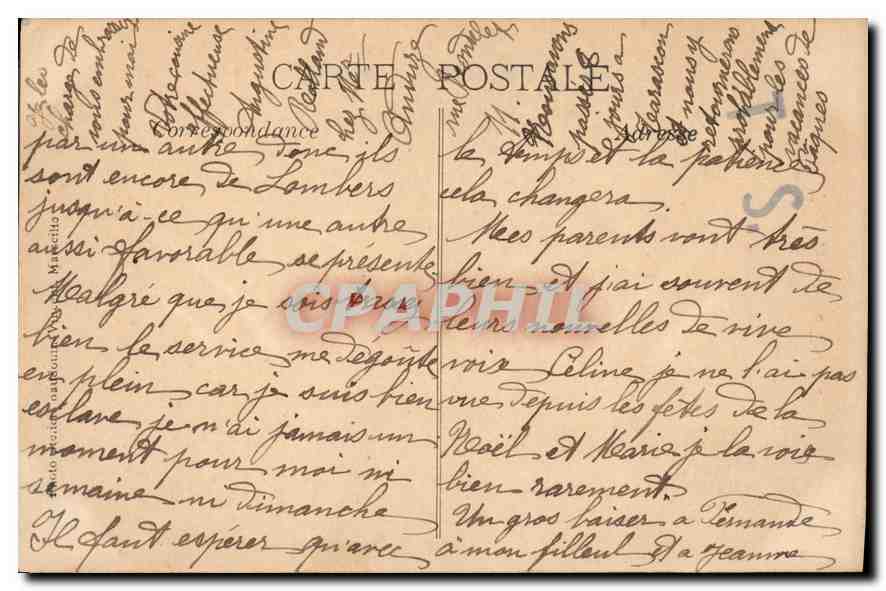 CARTE POSTALE
Correspondance
Adresse
par un autre donc ils
sont encore de Lombers
jusqu'à-ce qu'une autre
aussi favorable se présente
Malgré que je sois
bien le service me dégoûte
en plein car je suis bien
esclave je n'ai jamais un
moment pour moi ni
semaine ni dimanche
Il faut espérer qu'avec
le temps et la patience
cela changera.
Mes parents vont très
bien et j'ai souvent de
leurs nouvelles de vive
voix Céline je ne l'ai pas
vue depuis les fêtes de la
Noël et Marie je la vois
bien rarement.
Un gros baiser a Fernande
à mon filleul et a Jeanne
charge de
vous embrasser
pour moi
Votre cousine
affectueuse
Augustine
chez Mez
Anduze
Nous avons
passé 8
jours a
Tarascon
et nous y
retournerons
probablement
pour les
vacances de
Pâques
T.S.
CPAPHIL